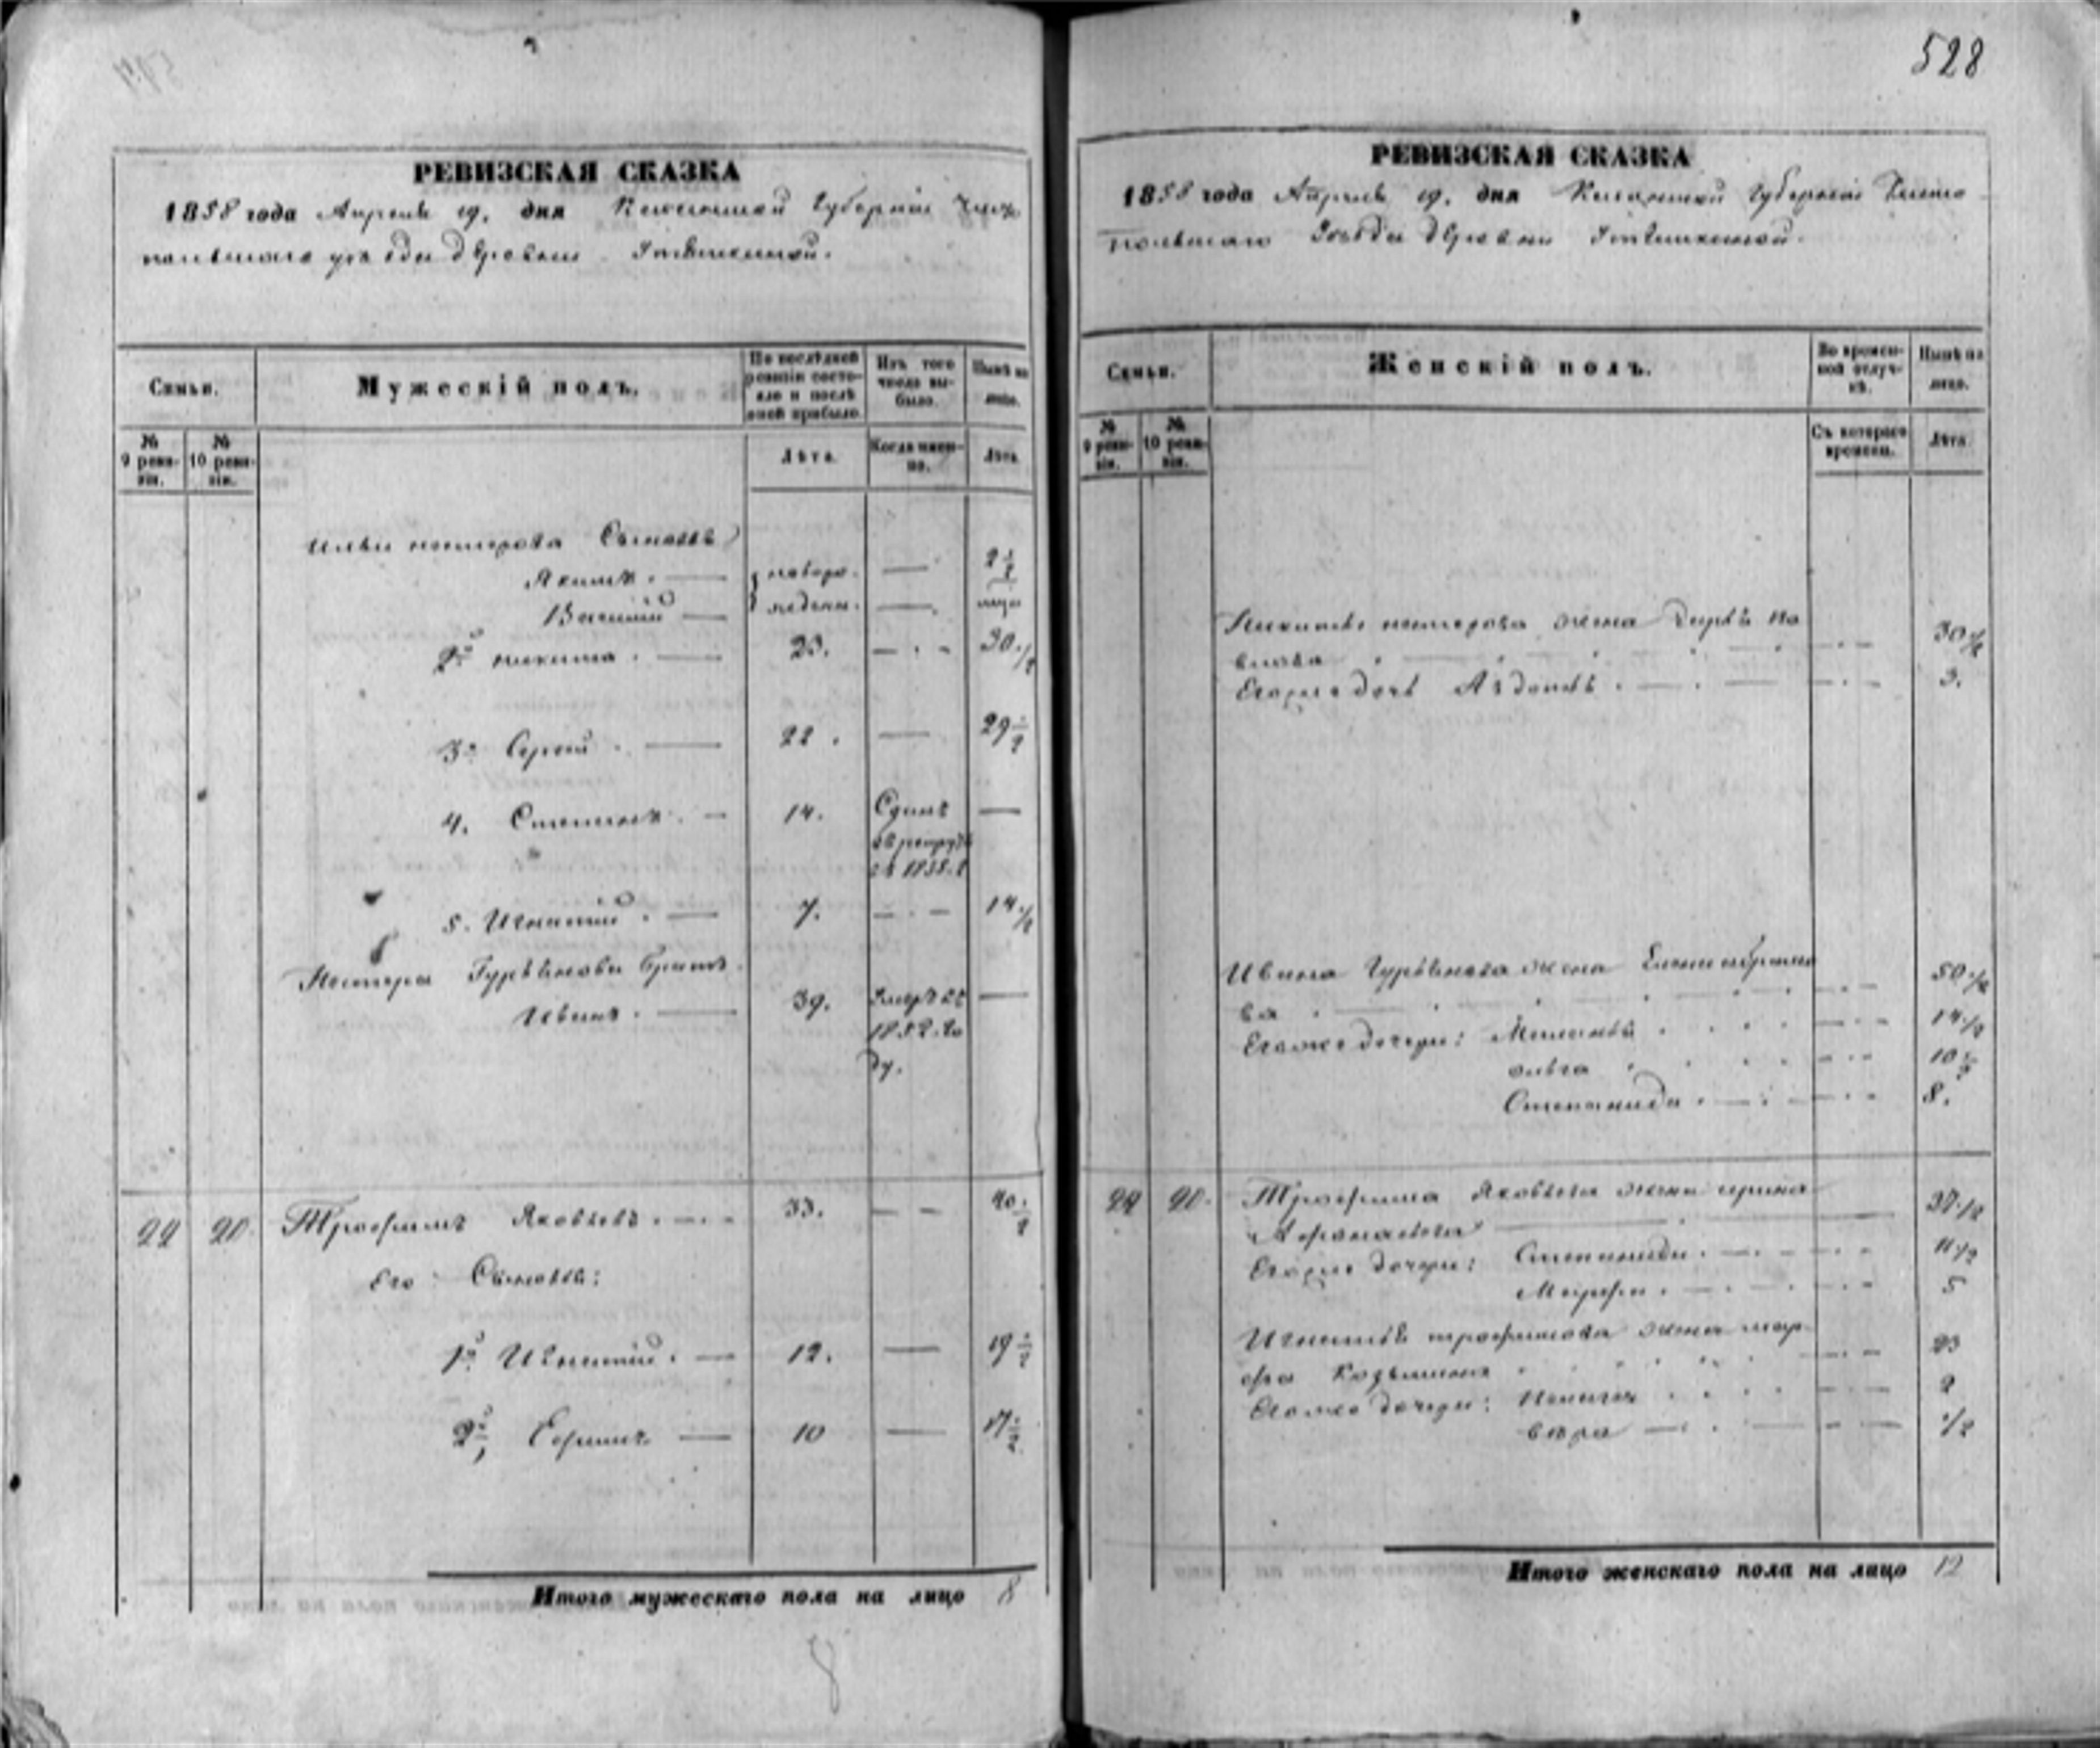 528
РЕВИЗСКАЯ СКАЗКА
1858 года Апреля 19. дня Казанской Губернии Чисто
польскаго уезда деревни
Семьи.
Мужескій полъ.
По послѣдней ревизіи состояло и послѣ оной прибыло.
Изъ того числа выбыло.
Нынѣ на лицо.
№ 9 ревизіи.
№ 10 ревизіи.
Лѣта.
Когда именно.
Лѣта.
Ильи нестерова Сыновья
Акимъ. — новоро- — 2 1/2
Василий — жденн. —
2й никита. — 23. — 30 1/2
3й Сергей. — 22. — 29 1/2
4. Степанъ. — 14. Сданъ —
въ рекруты
въ 1855. г
5. Игнатий. — 7. — 14 1/2
Нестера Гурьянова братъ
Иванъ. — 39. Умеръ въ —
1852. го
ду.
22 20. Трофимъ Яковлевъ. — 33. — 40 1/2
Его Сыновья:
1й Игнатий. — 12. — 19 1/2
2й Ефимъ — 10 — 17 1/2
Итого мужескаго пола на лицо 8
8
РЕВИЗСКАЯ СКАЗКА
1858 года Апреля 19. дня Казанской Губернии Чисто
польскаго Уезда деревни
Семьи.
Женскій полъ.
Во временной отлучкѣ.
Нынѣ на лицо.
№ 9 ревизіи.
№ 10 ревизіи.
Съ котораго времени.
Лѣта.
Никиты нестерова жена Дарья Па
влова — 30 1/2
Егоже дочь Авдотья. — 3.
Ивана Гурьянова жена Елена
ва — 50 1/2
Егоже дочери: Меланья — 14 1/2
ольга — 10 1/2
Степанида. — 8.
22 20. Трофима Яковлева жена ирина
Афанасьева — 37 1/2
Егоже дочери: Степанида. — 11 1/2
Марфа. — 5
Игнатья трофимова жена мар
фа Козьмина — 23
Егоже дочери: — 2
вера — 1/2
Итого женскаго пола на лицо 12